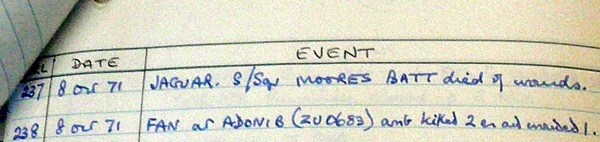 DATE EVENT
237 8 Oct 71 JAGUAR. S/Sgt MOORES BATT died of wounds.
238 8 Oct 71 FAN at ADONIB (ZU0683) amb killed 2 en and wounded 1.